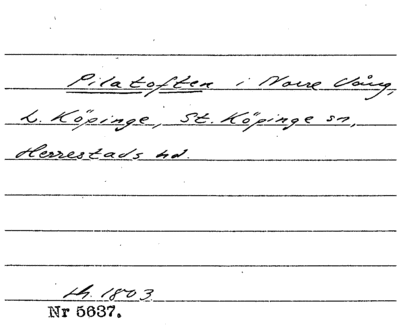 Pilatoften i Norre Vång,
L. Köpinge, St. Köpinge sn,
Herrestads hd.
Lh. 1803
Nr 5637.